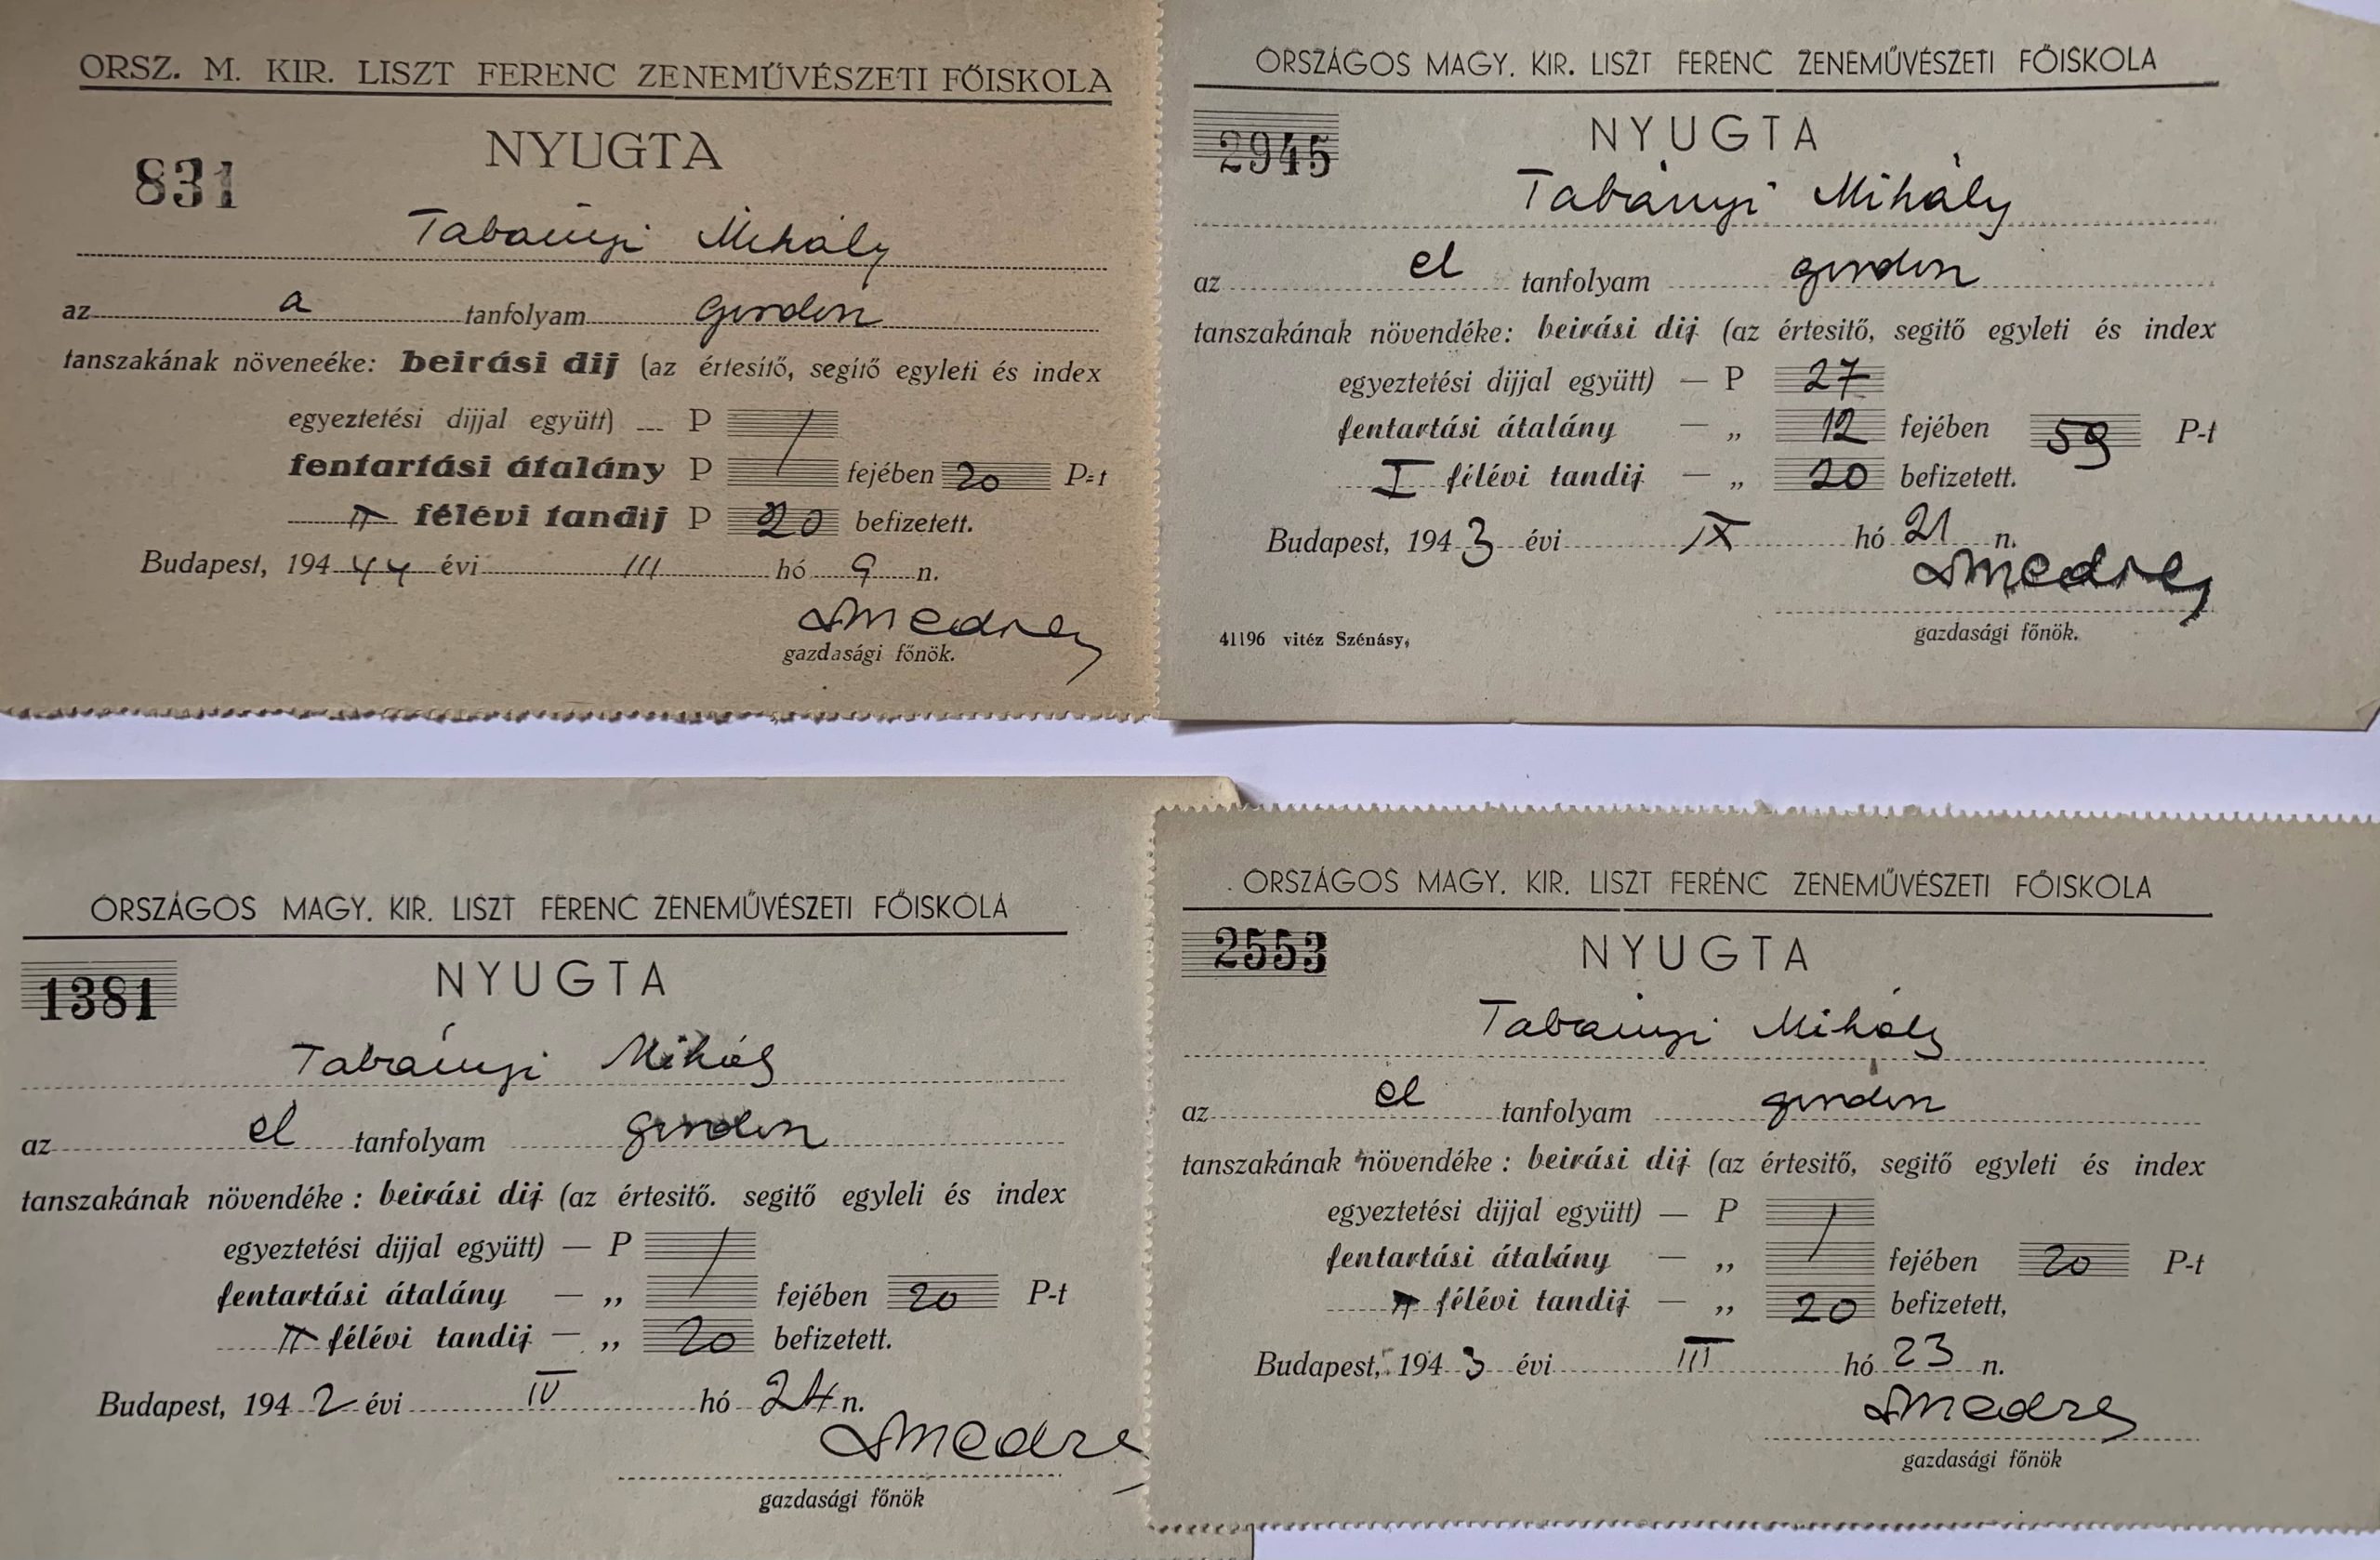 ORSZ. M. KIR. LISZT FERENC ZENEMŰVÉSZETI FŐISKOLA
831
NYUGTA
Tabányi Mihály
az a tanfolyam gordon
tanszakának növeneéke: beirási dij (az értesítő, segítő egyleti és index
egyeztetési dijjal együtt) --- P
fentartási átalány P fejében 20 P=t
II félévi tandij P 20 befizetett.
Budapest, 194 44 évi III hó 9 n.
gazdasági főnök.
ORSZÁGOS MAGY. KIR. LISZT FERENC ZENEMŰVÉSZETI FŐISKOLA
2945
NYUGTA
Tabányi Mihály
az el tanfolyam gordon
tanszakának növendéke: beirási dij (az értesitő, segitő egyleti és index
egyeztetési dijjal együtt) — P 27
fentartási átalány — „ 12 fejében 59 P-t
I félévi tandij — „ 20 befizetett.
Budapest, 194 3 évi IX hó 21 n.
gazdasági főnök.
41196 vitéz Szénásy,
ORSZÁGOS MAGY. KIR. LISZT FERENC ZENEMŰVÉSZETI FŐISKOLA
1381
NYUGTA
Tabányi Mihály
az el tanfolyam gordon
tanszakának növendéke : beirási dij (az értesitő. segitő egyleli és index
egyeztetési dijjal együtt) — P
fentartási átalány — ,, fejében 20 P-t
II félévi tandij — ,, 20 befizetett.
Budapest, 194 2 évi IV hó 24 n.
gazdasági főnök
ORSZÁGOS MAGY. KIR. LISZT FERENC ZENEMŰVÉSZETI FŐISKOLA
2553
NYUGTA
Tabányi Mihály
az el tanfolyam gordon
tanszakának növendéke : beirási dij (az értesitő, segitő egyleti és index
egyeztetési dijjal együtt) — P
fentartási átalány — ,, fejében 20 P-t
II félévi tandij — ,, 20 befizetett,
Budapest, 194 3 évi III hó 23 n.
gazdasági főnök